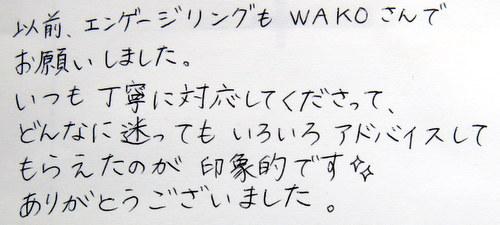 以前、エンゲージリングも WAKOさんで
お願いしました。
いつも丁寧に対応してくださって、
どんなに迷っても いろいろ アドバイスして
もらえたのが 印象的です✨
ありがとうございました。